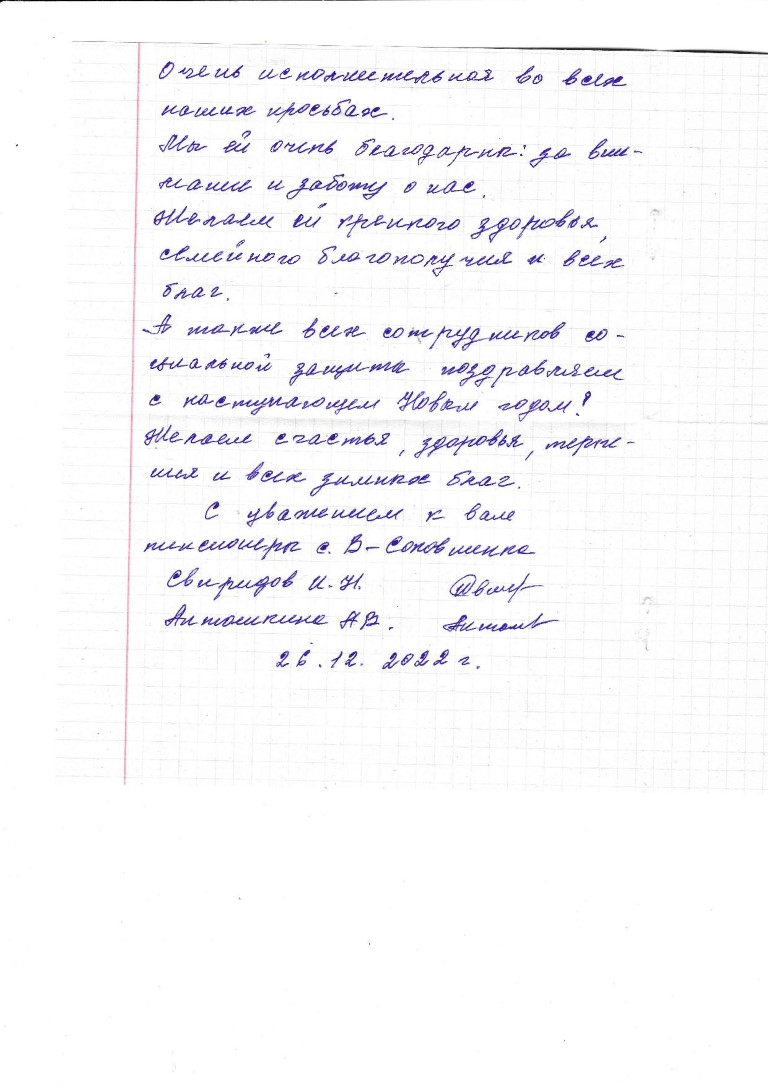 Очень исполнительная во всех
наших просьбах.
Мы ей очень благодарны: за вни-
мание и заботу о нас.
Желаем ей крепкого здоровья,
семейного благополучия и всех
благ.
А также всех сотрудников со-
циальной защиты поздравляем
с наступающем Новым годом!
Желаем счастья, здоровья, терпе-
ния и всех земных благ.
С уважением к вам
пенсионеры с. В-
Свиридов И.Н.
Антошкина А.В.
26.12.2022 г.